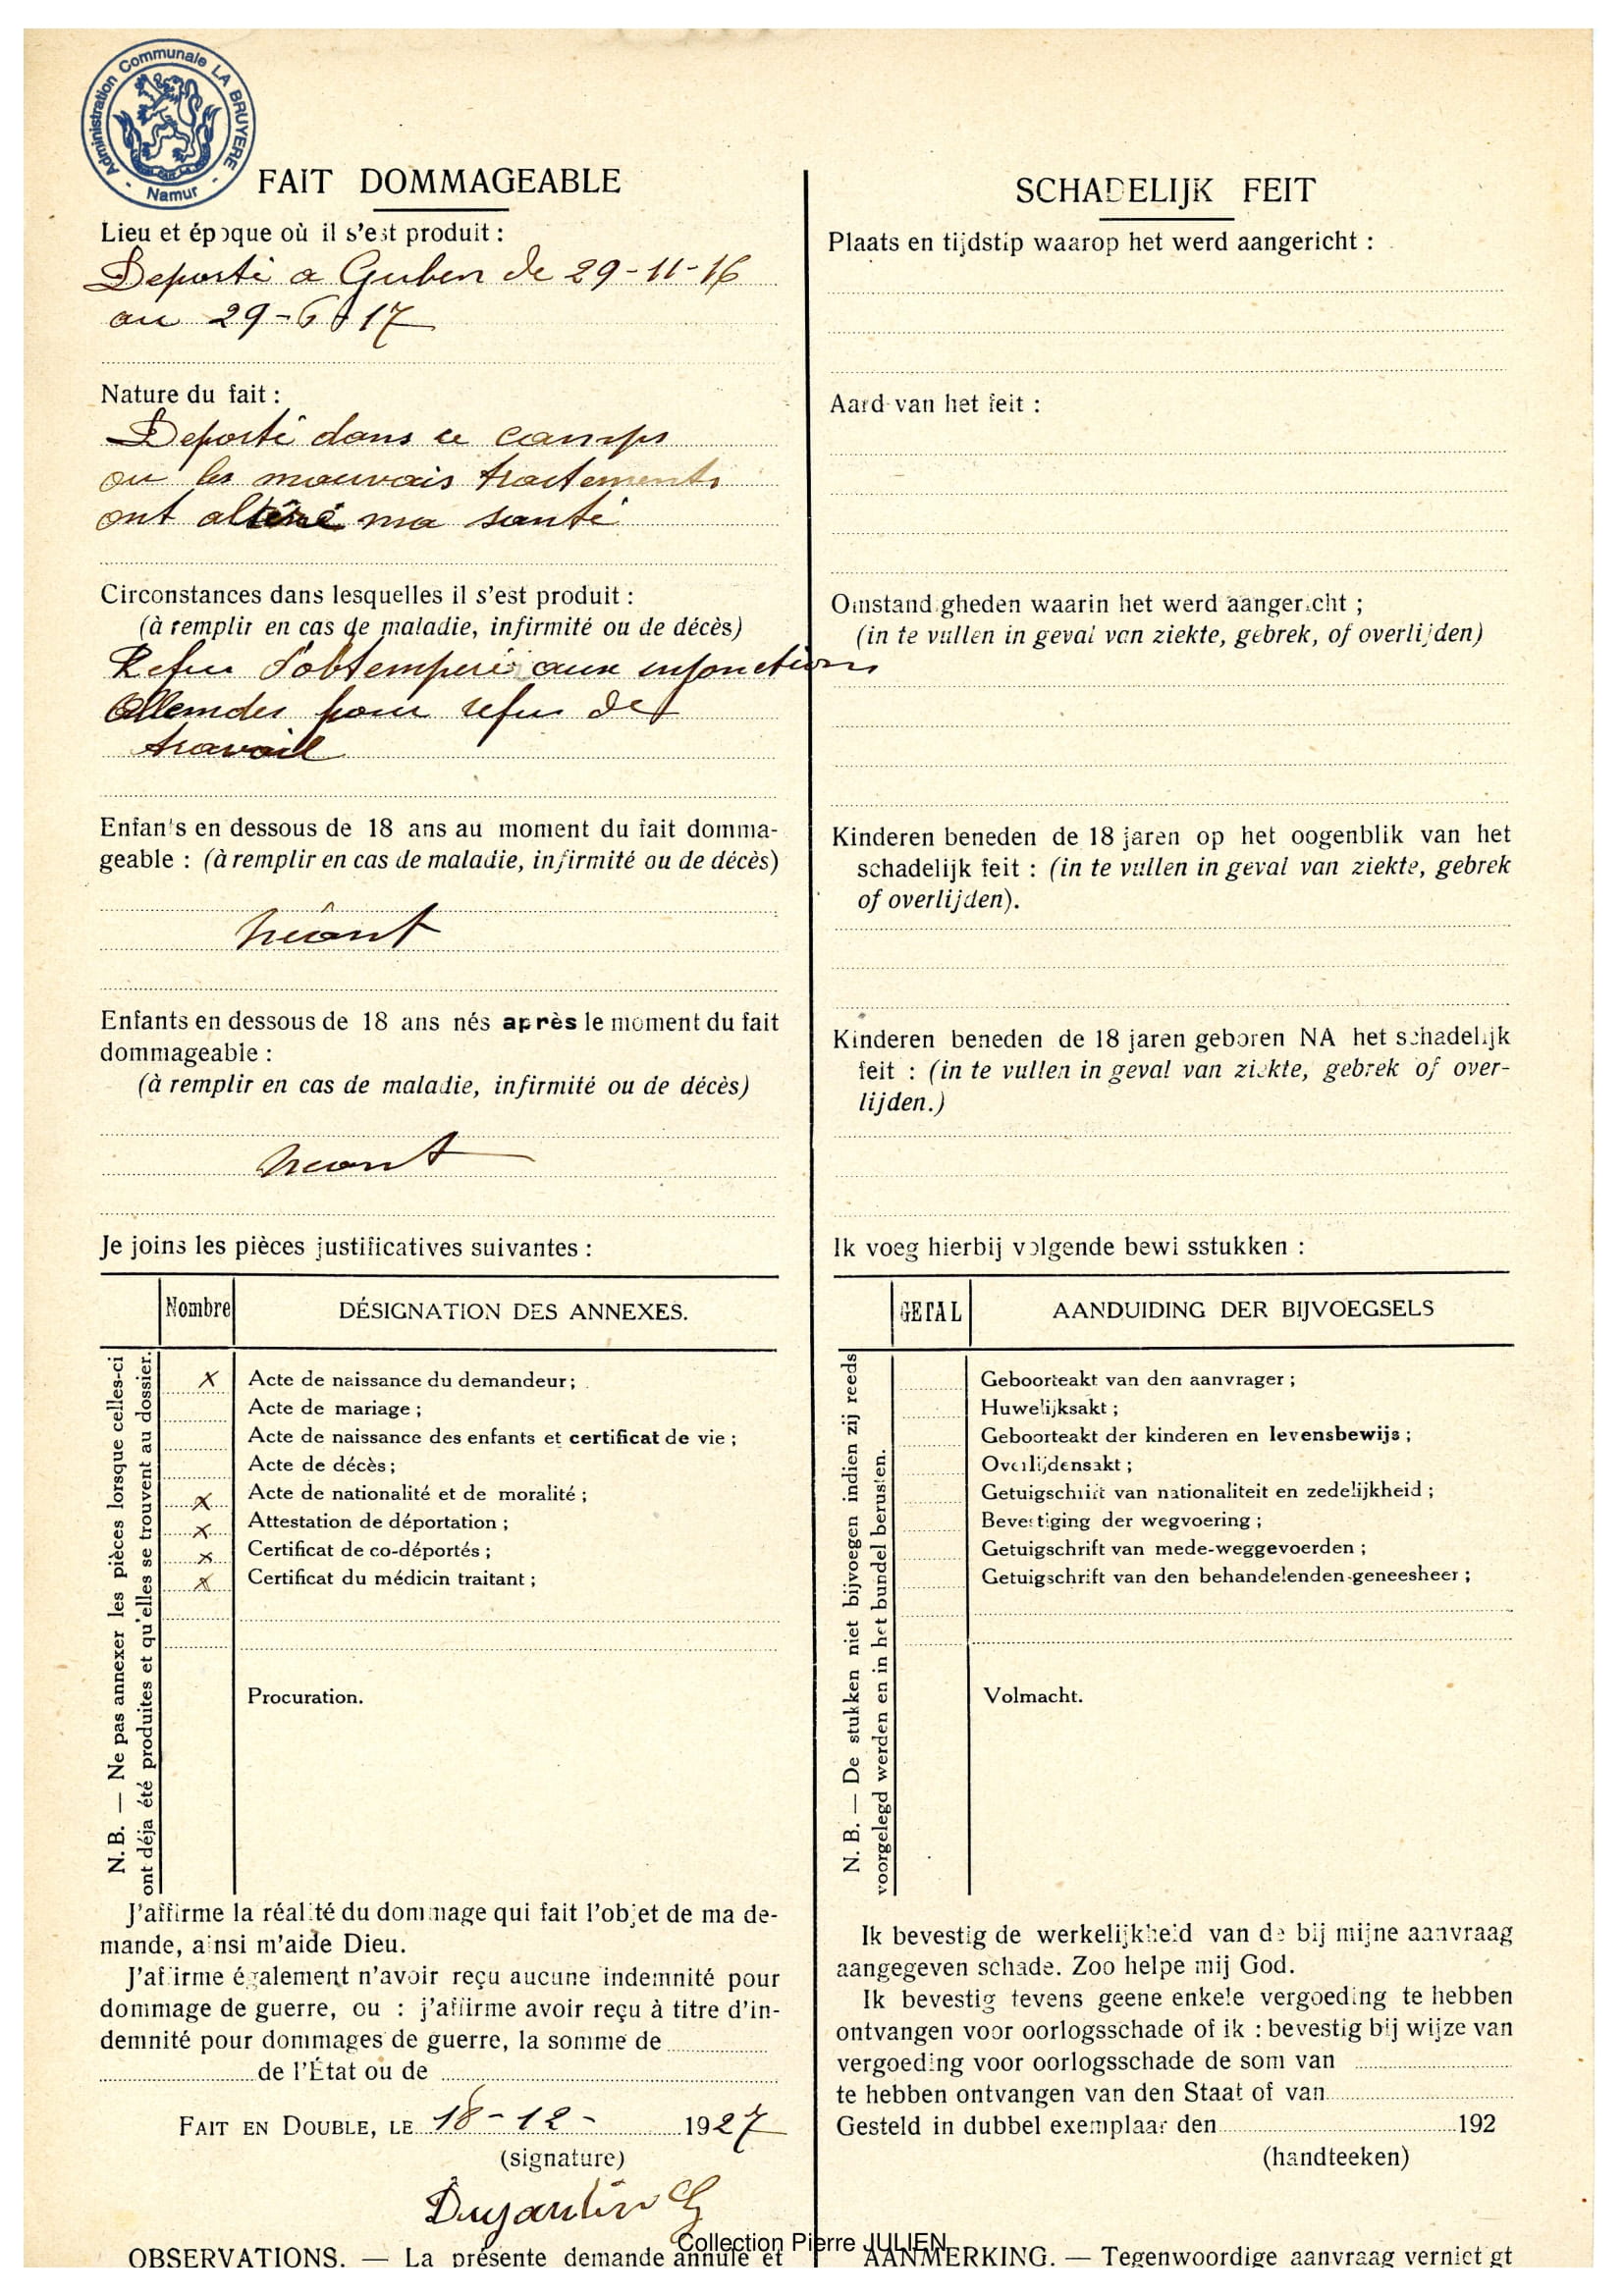 Administration Communale LA BRUYERE
- Namur -
FAIT DOMMAGEABLE
Lieu et époque où il s'est produit :
Deporté a Guben de 29-11-16
au 29-6-17
Nature du fait :
Deporté dans ce camps
ou les mauvais traitements
ont altéré ma santé
Circonstances dans lesquelles il s'est produit :
(à remplir en cas de maladie, infirmité ou de décès)
Refus d'obtemperé aux injonctions
Allemdes pour refus de
travail
Enfants en dessous de 18 ans au moment du fait domma-
geable : (à remplir en cas de maladie, infirmité ou de décès)
Néant
Enfants en dessous de 18 ans nés après le moment du fait
dommageable :
(à remplir en cas de maladie, infirmité ou de décès)
Neant
Je joins les pièces justificatives suivantes :
Nombre DÉSIGNATION DES ANNEXES.
N. B. — Ne pas annexer les pièces lorsque celles-ci
ont déja été produites et qu'elles se trouvent au dossier.
x Acte de naissance du demandeur ;
Acte de mariage ;
Acte de naissance des enfants et certificat de vie ;
Acte de décès ;
x Acte de nationalité et de moralité ;
x Attestation de déportation ;
x Certificat de co-déportés ;
x Certificat du médicin traitant ;
Procuration.
J'affirme la réalité du dommage qui fait l'objet de ma de-
mande, ainsi m'aide Dieu.
J'affirme également n'avoir reçu aucune indemnité pour
dommage de guerre, ou : j'affirme avoir reçu à titre d'in-
demnité pour dommages de guerre, la somme de
de l'État ou de
FAIT EN DOUBLE, LE 18-12- 1927
(signature)
Dujardin G
OBSERVATIONS. — La présente demande annule et
SCHADELIJK FEIT
Plaats en tijdstip waarop het werd aangericht :
Aard van het feit :
Omstandigheden waarin het werd aangericht ;
(in te vullen in geval van ziekte, gebrek, of overlijden)
Kinderen beneden de 18 jaren op het oogenblik van het
schadelijk feit : (in te vullen in geval van ziekte, gebrek
of overlijden).
Kinderen beneden de 18 jaren geboren NA het schadelijk
feit : (in te vullen in geval van ziekte, gebrek of over-
lijden.)
Ik voeg hierbij volgende bewi sstukken :
GETAL AANDUIDING DER BIJVOEGSELS
N. B. — De stukken niet bijvoegen indien zij reeds
voorgelegd werden en in het bundel berusten.
Geboorteakt van den aanvrager ;
Huwelijksakt ;
Geboorteakt der kinderen en levensbewijs ;
Overlijdensakt ;
Getuigschrift van nationaliteit en zedelijkheid ;
Bevestiging der wegvoering ;
Getuigschrift van mede-weggevoerden ;
Getuigschrift van den behandelenden-geneesheer ;
Volmacht.
Ik bevestig de werkelijkheid van de bij mijne aanvraag
aangegeven schade. Zoo helpe mij God.
Ik bevestig tevens geene enkele vergoeding te hebben
ontvangen voor oorlogsschade of ik : bevestig bij wijze van
vergoeding voor oorlogsschade de som van
te hebben ontvangen van den Staat of van
Gesteld in dubbel exemplaar den 192
(handteeken)
AANMERKING. — Tegenwoordige aanvraag verniet gt
Collection Pierre JULIEN